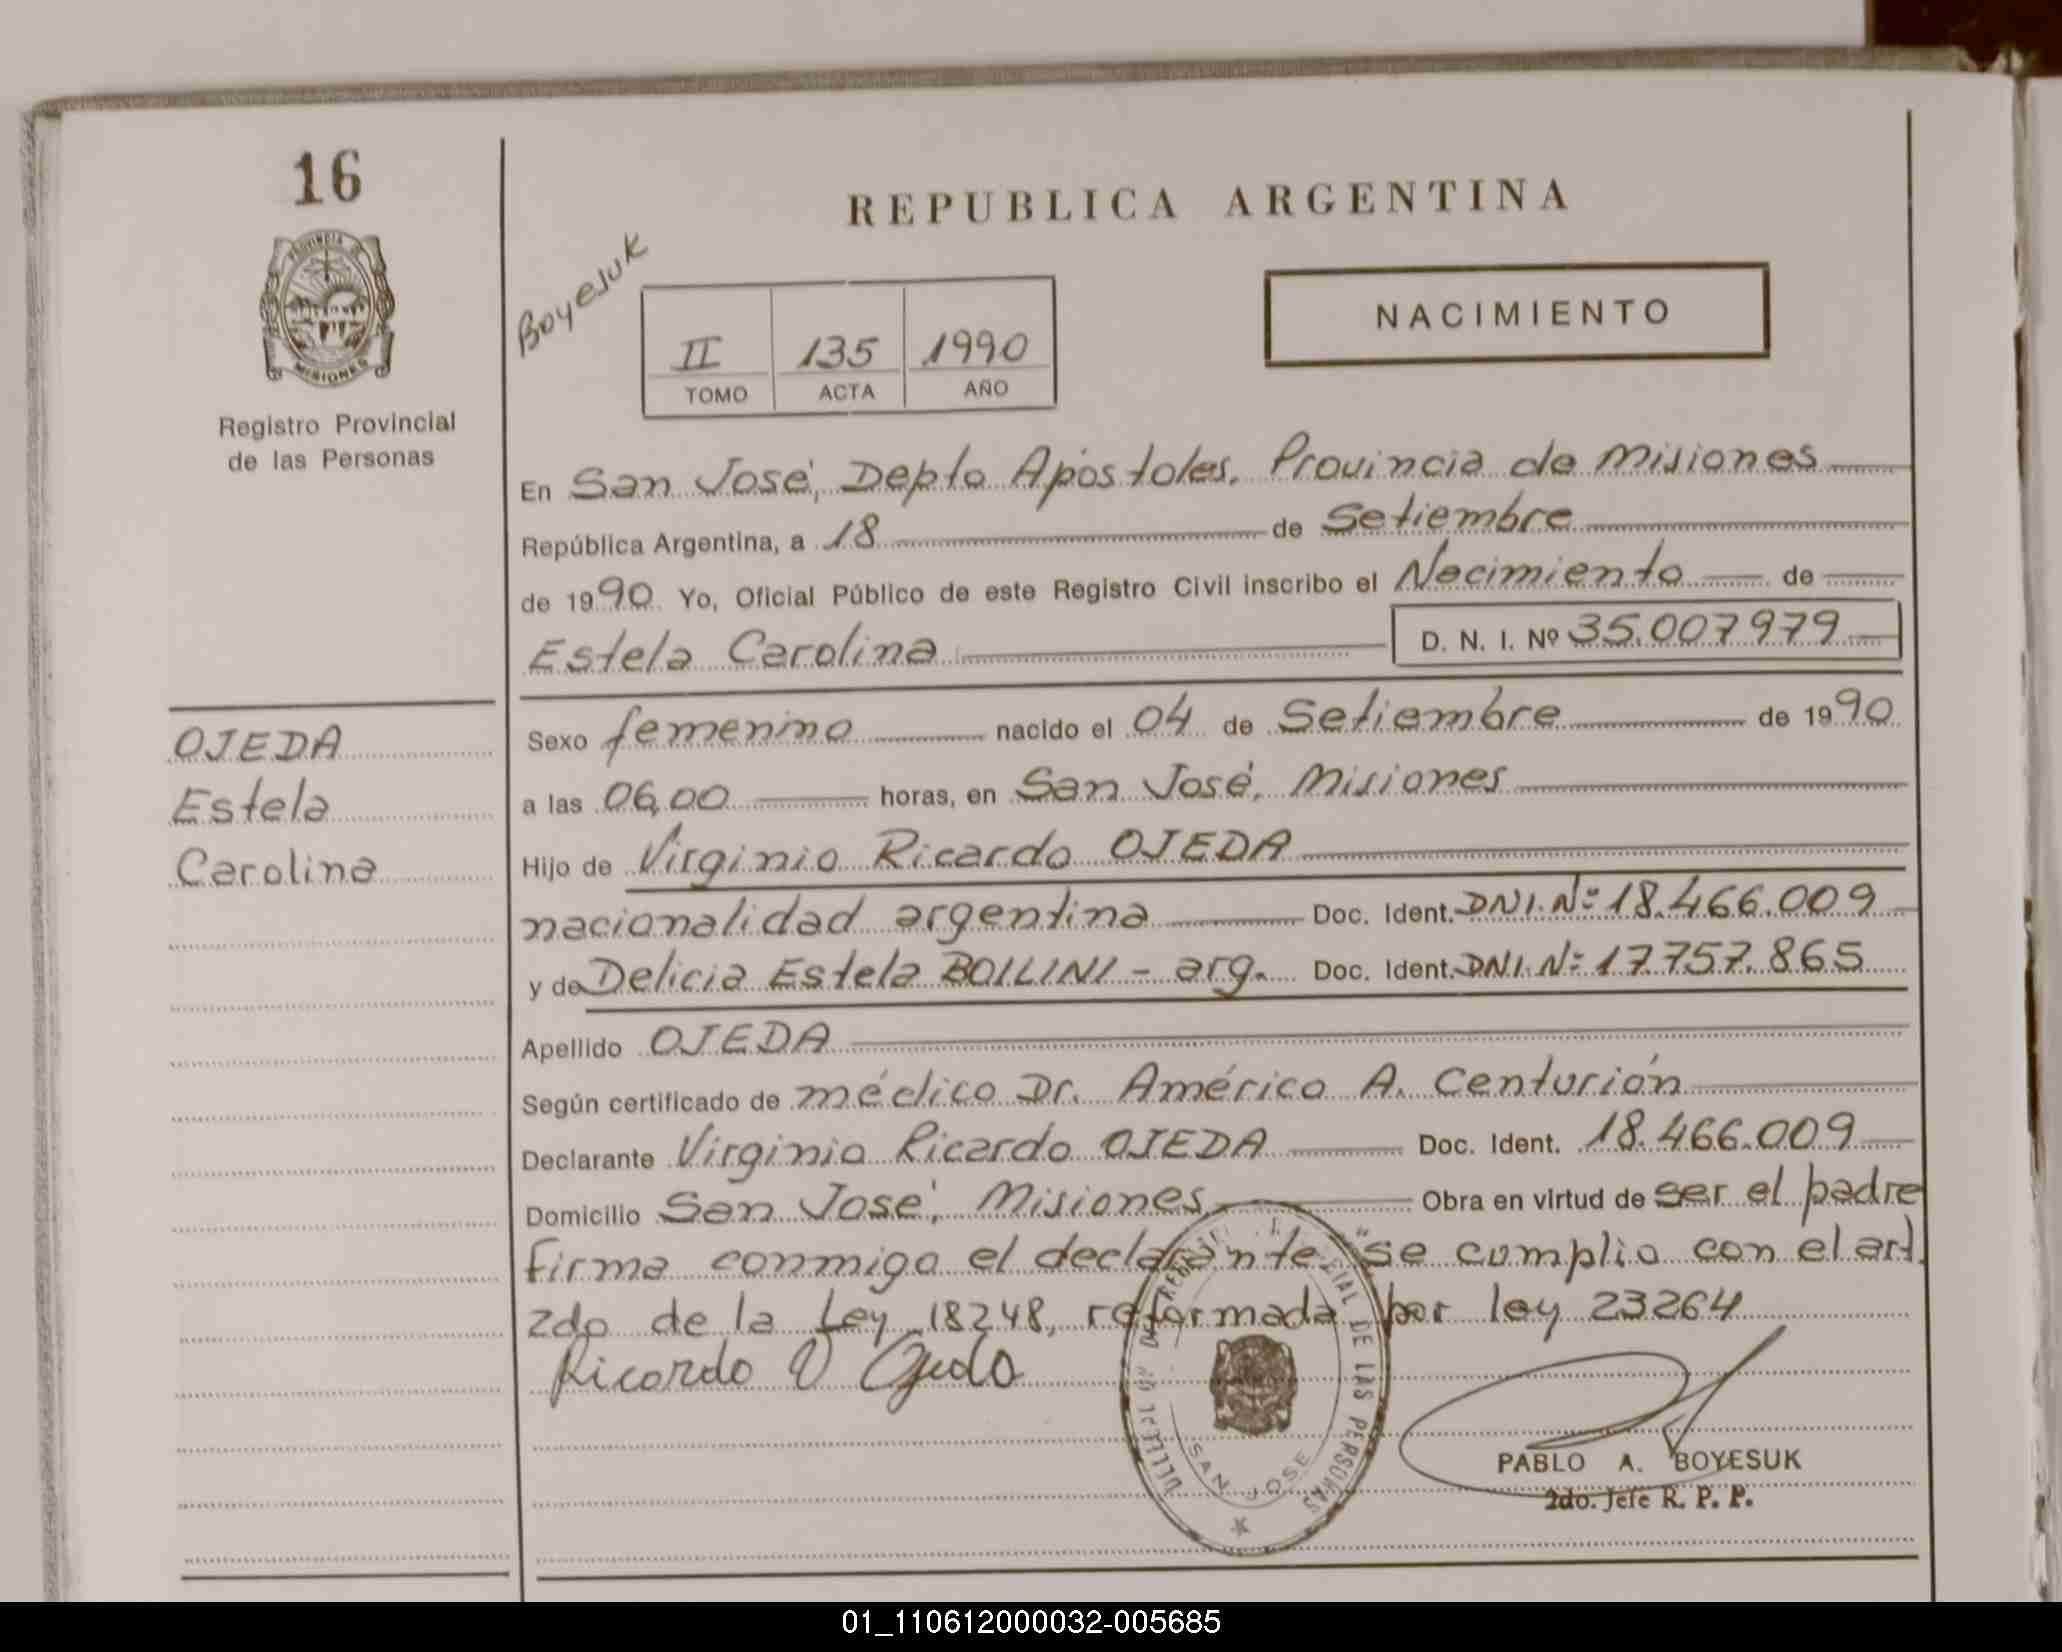 16
PROVINCIA DE
MISIONES
Registro Provincial
de las Personas
REPUBLICA ARGENTINA
Boyesuk
II 135 1990
TOMO ACTA AÑO
NACIMIENTO
En San José, Depto Apóstoles, Provincia de Misiones
República Argentina, a 18 de Setiembre
de 1990 Yo, Oficial Público de este Registro Civil inscribo el Nacimiento de
Estela Carolina D. N. I. Nº 35.007979
OJEDA
Estela
Carolina
Sexo femenino nacido el 04 de Setiembre de 1990
a las 06,00 horas, en San José, Misiones
Hijo de Virginio Ricardo OJEDA
nacionalidad argentina Doc. Ident. DNI.Nº 18.466.009
y de Delicia Estela BOILINI - arg. Doc. Ident. DNI.Nº 17.757.865
Apellido OJEDA
Según certificado de médico Dr. Américo A. Centurión
Declarante Virginio Ricardo OJEDA Doc. Ident. 18.466.009
Domicilio San José, Misiones, Obra en virtud de ser el padre
Firma conmigo el declarante "se cumplio con el art.
2do de la Ley 18248, reformada por ley 23264
Ricardo V Ojeda
DE LAS PERSONAS
SAN JOSE
PABLO A. BOYESUK
2do. Jefe R. P. P.
01_110612000032-005685